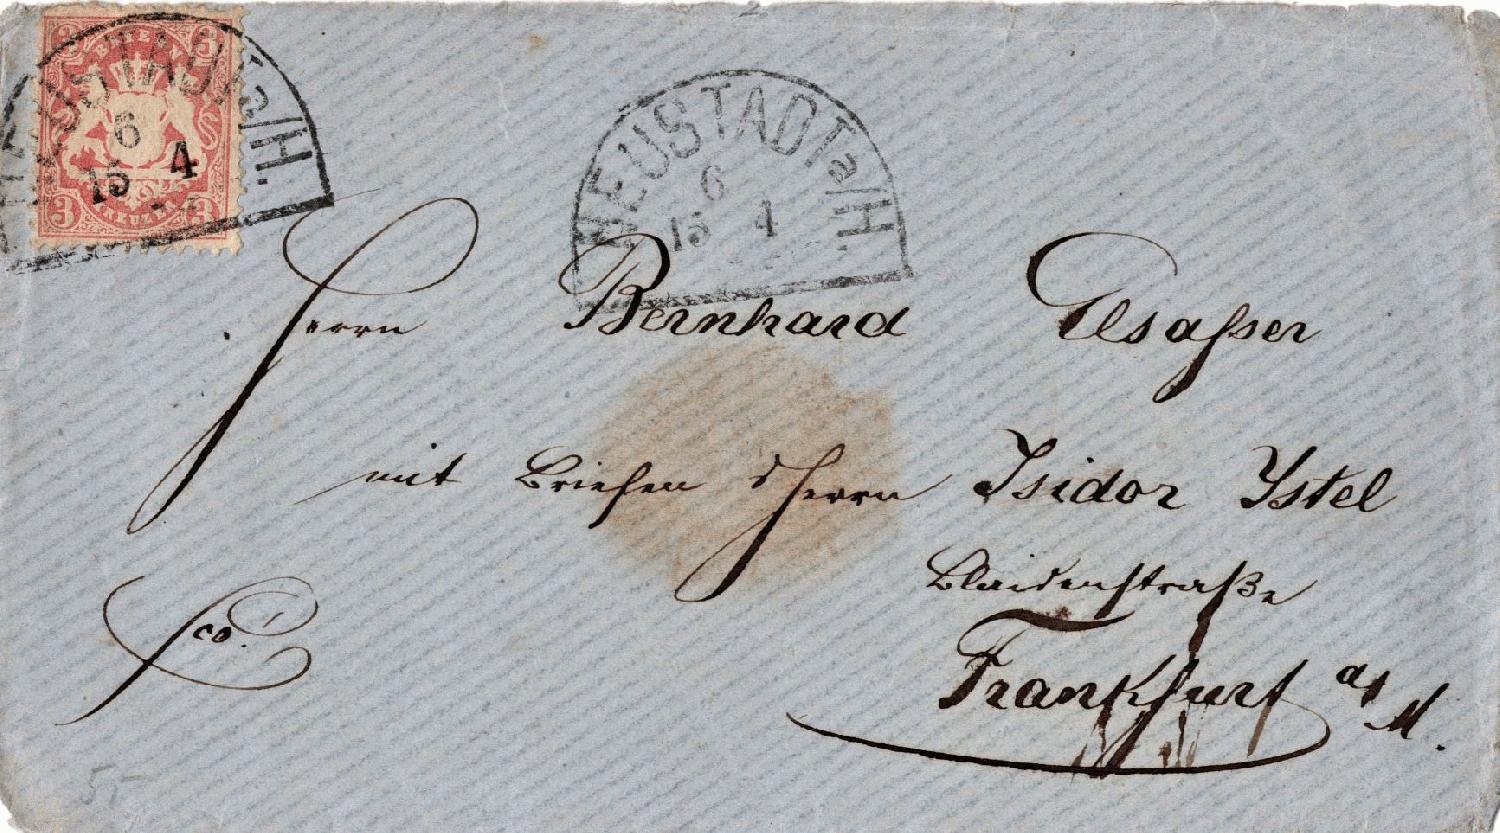 BAYERN
3 3
NEUSTADT a/H.
6
15 4
3 KREUZER 3
NEUSTADT a/H.
6
15 4
Herrn Bernhard Elsasser
mit Briefen d Herrn Isidor Ystel
Blaidenstraße
Frankfurt a/M.
fco.
5,-